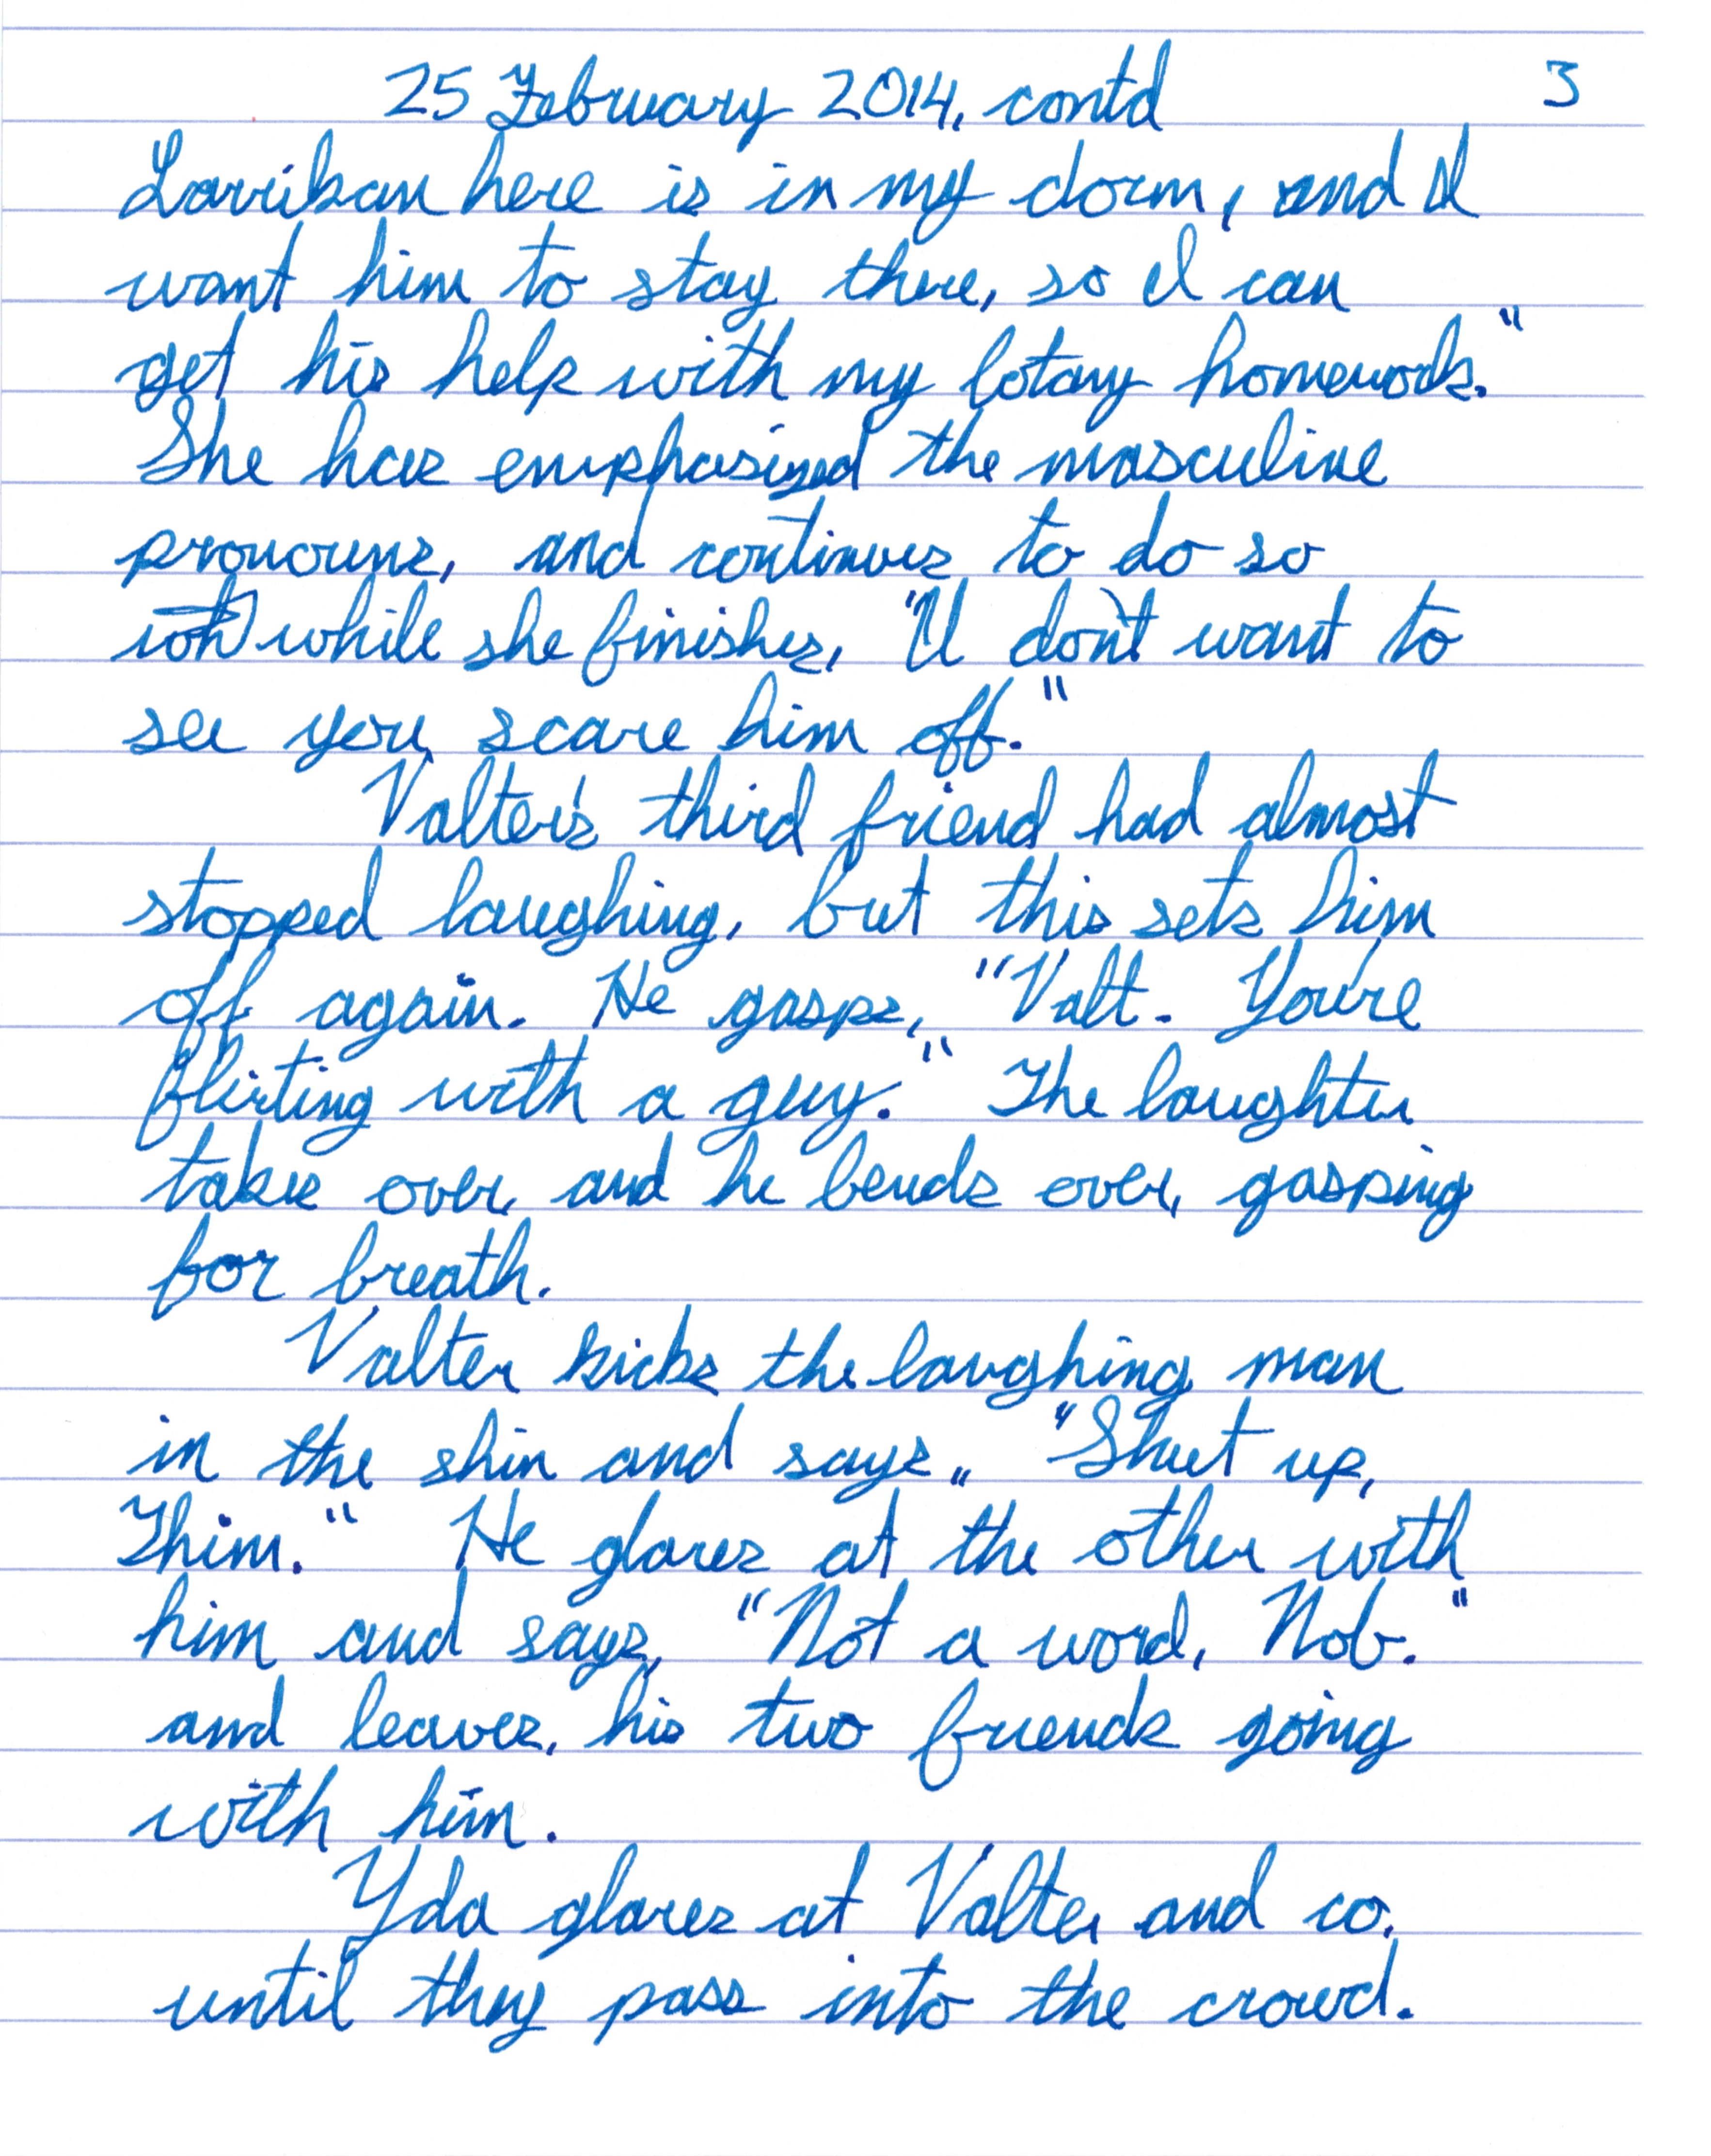 25 February 2014, contd 3
Larrikan here is in my dorm, and I
want him to stay there, so I can
get his help with my botany homework."
She has emphasized the masculine
pronouns, and continues to do so
while she finishes, "I don't want to
see you scare him off."
Valter's third friend had almost
stopped laughing, but this sets him
off again. He gasps, "Valt. You're
flirting with a guy." The laughter
takes over and he bends over, gasping
for breath.
Valter kicks the laughing man
in the shin and says, "Shut up,
Thim." He glares at the other with
him and says, "Not a word, Nob."
and leaves, his two friends going
with him.
Yda glares at Valter and co.
until they pass into the crowd.